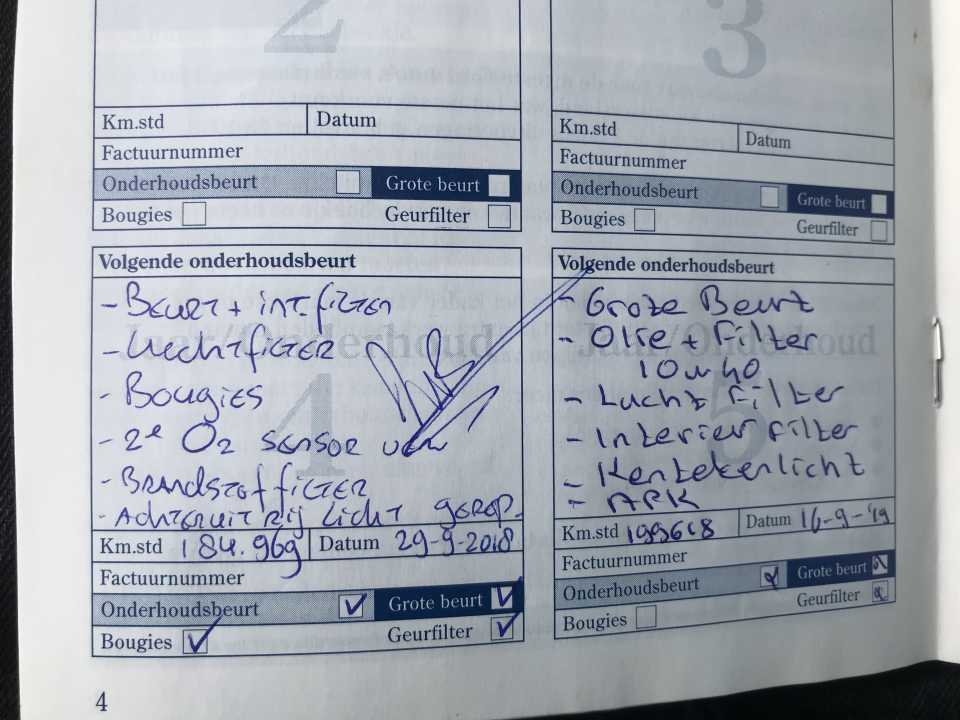 2
3
Km.std
Datum
Factuurnummer
Onderhoudsbeurt
Grote beurt
Bougies
Geurfilter
Km.std
Datum
Factuurnummer
Onderhoudsbeurt
Grote beurt
Bougies
Geurfilter
Volgende onderhoudsbeurt
- Beurt + int. filter
- Luchtfilter
- Bougies
- 2e O2 sensor
- Brandstoffilter
- Achteruit rij licht gerep.
Jaar/Onderhoud
4
Km.std 184.969
Datum 29-9-2018
Factuurnummer
Onderhoudsbeurt
Grote beurt
Bougies
Geurfilter
Volgende onderhoudsbeurt
- Grote Beurt
- Olie + Filter
10w40
- Lucht Filter
- Interier filter
- Kentekenlicht
- APK
Jaar/Onderhoud
5
Km.std 199618
Datum 16-9-'19
Factuurnummer
Onderhoudsbeurt
Grote beurt
Bougies
Geurfilter
4